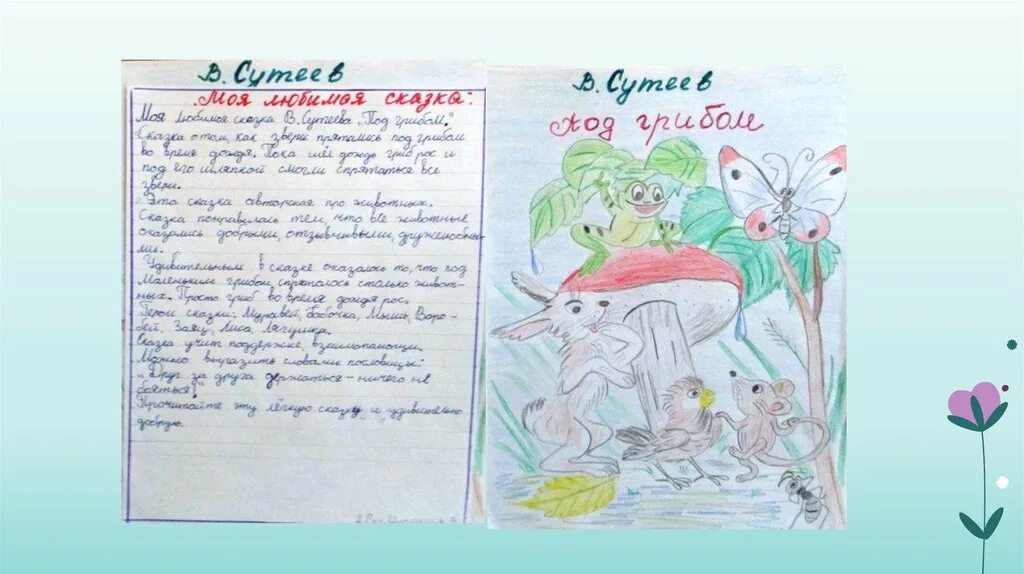 В. Сутеев
Моя любимая сказка:
Моя любимая сказка В. Сутеева „Под грибом."
Сказка о том, как звери прятались под грибом
во время дождя. Пока шёл дождь гриб рос и
под его шляпкой смогли спрятаться все
звери.
Это сказка авторская про животных.
Сказка понравилась тем, что все животные
оказались добрыми, отзывчивыми, дружелюбны-
ми.
Удивительным в сказке оказалось то, что под
маленьким грибом спряталось столько живот-
ных. Просто гриб во время дождя рос.
Герои сказки: Муравей, бабочка, Мышь, Воро-
бей, Заяц, Лиса, Лягушка.
Сказка учит поддержке, взаимопомощи.
Можно выразить словами пословицы:
„Друг за друга держаться – ничего не
бояться!"
Прочитайте эту лёгкую сказку и удивительно
добрую.
В. Сутеев
Под грибом